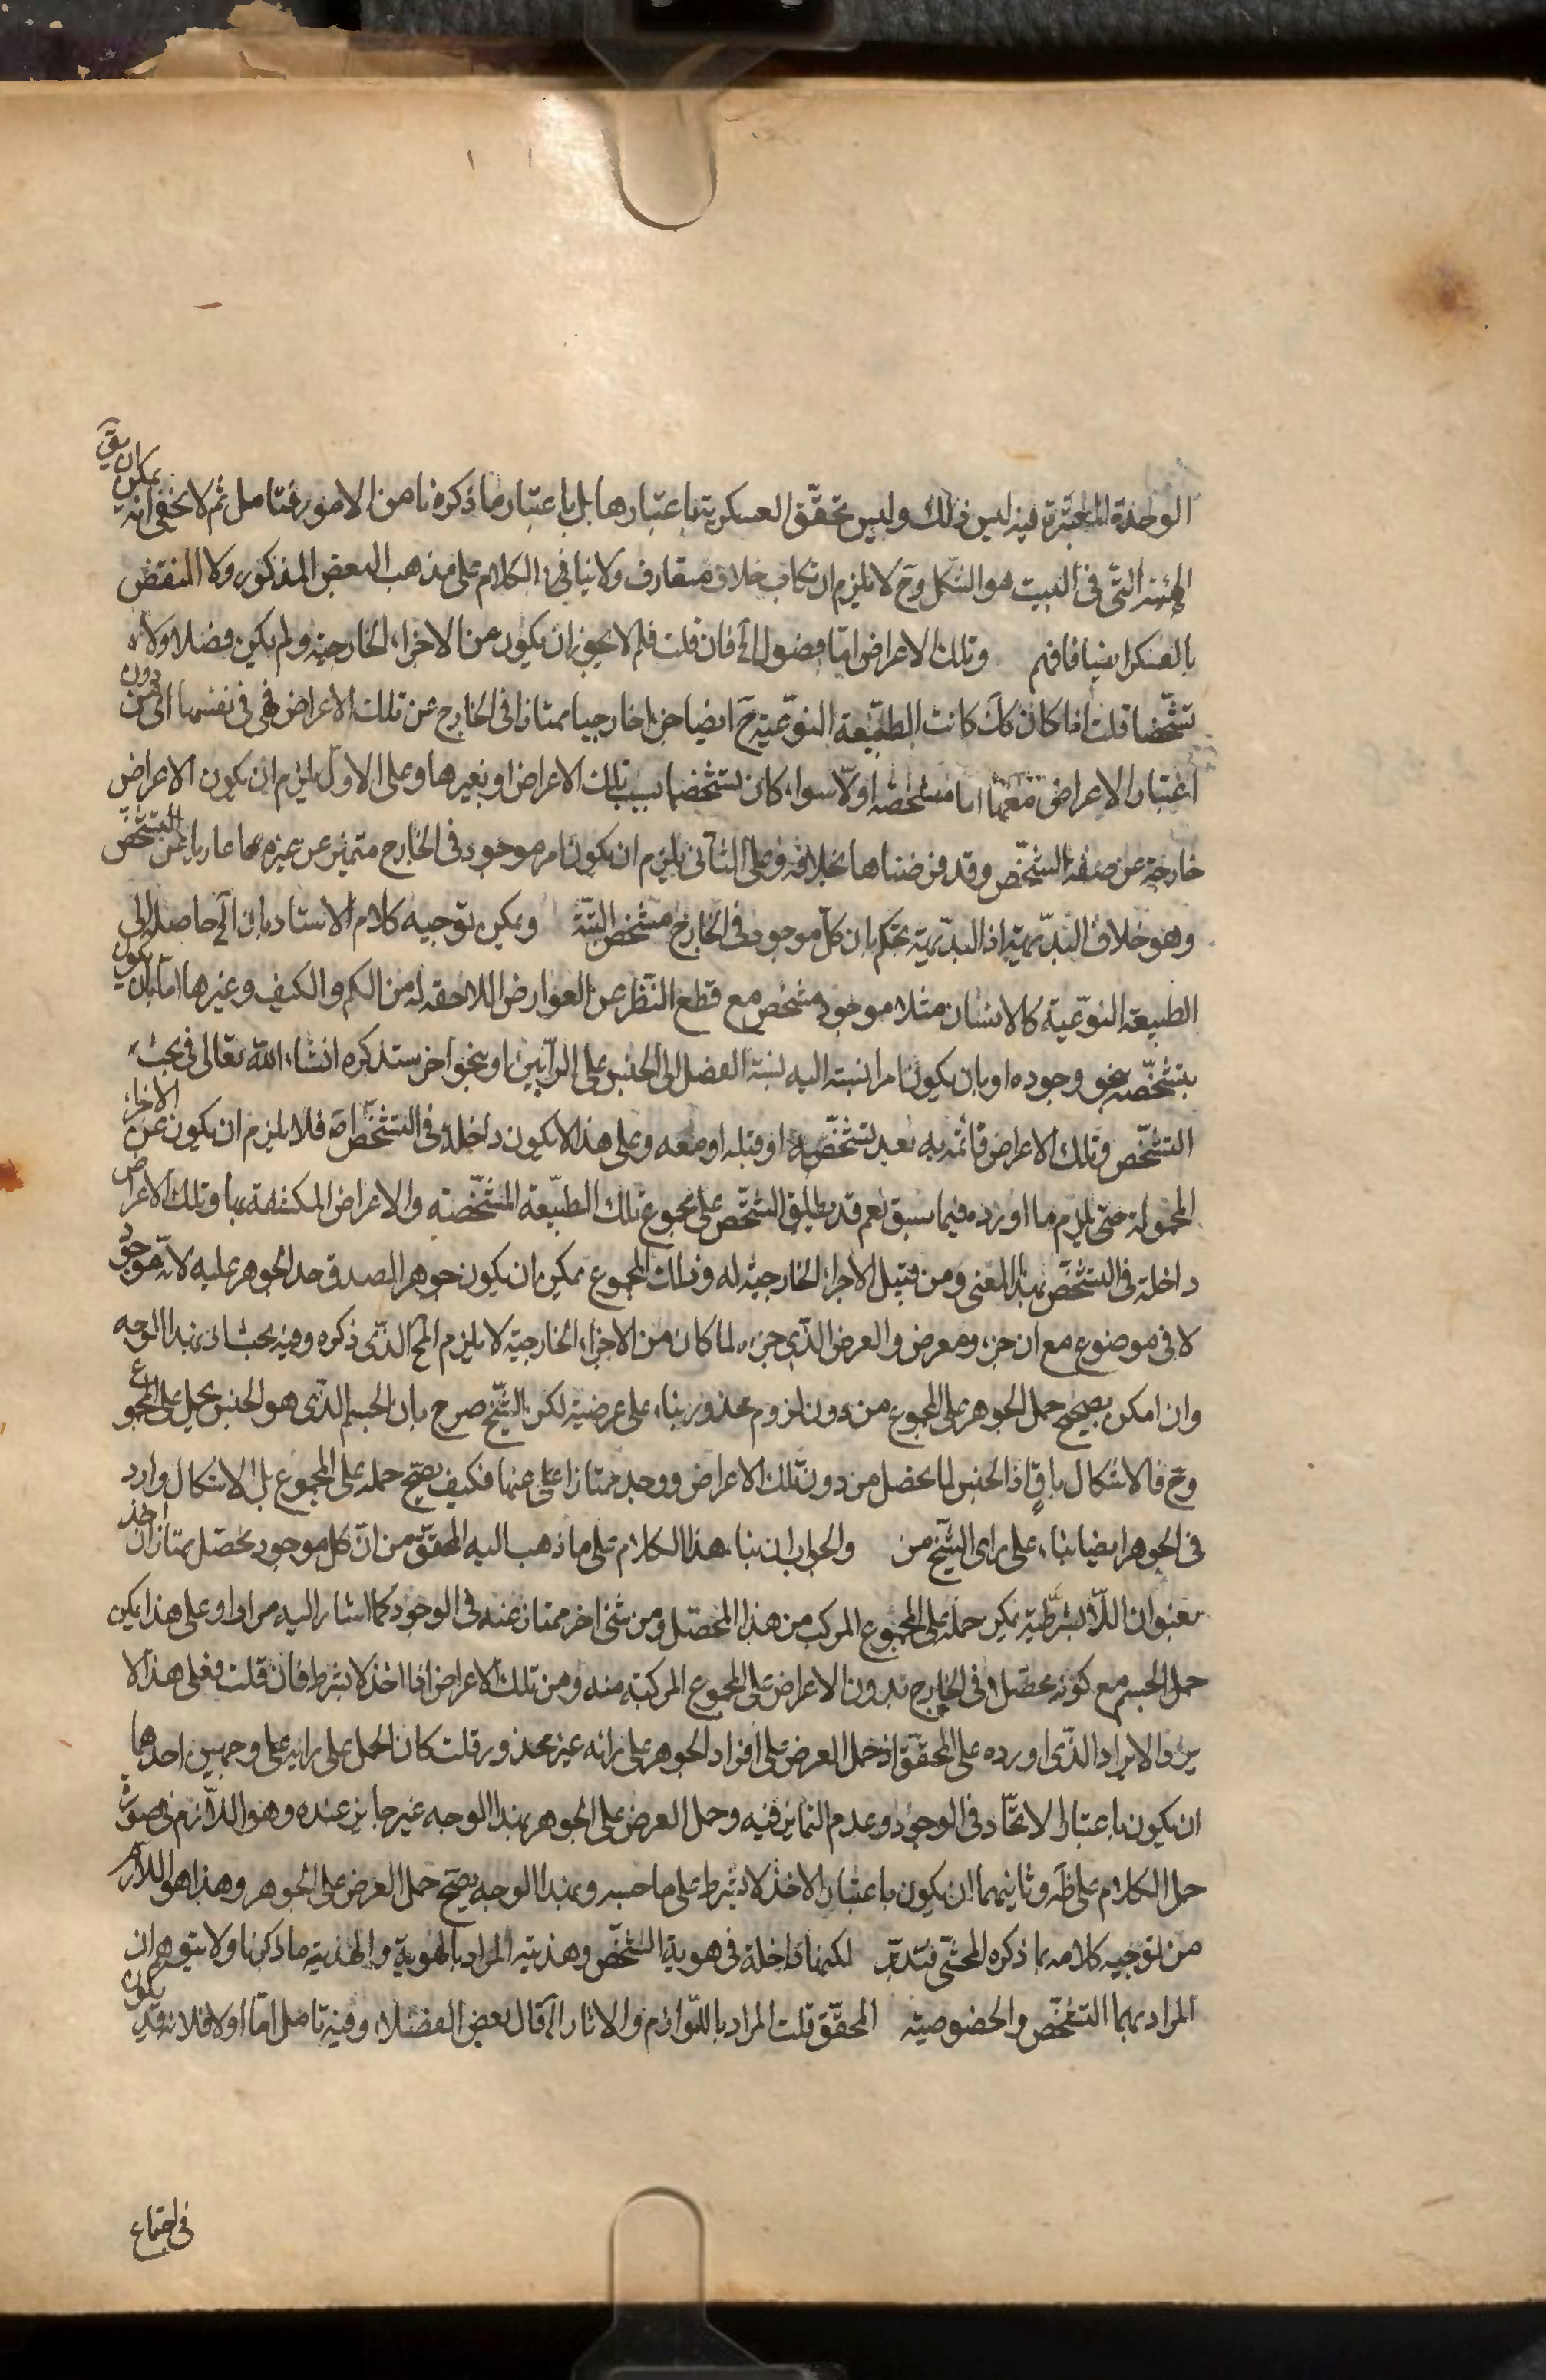 الوحدة المعتبرة فيه ليس ذلك وليس تحقق العسكرية باعتبارها بل باعتبار ما ذكره نا من الامور فتامل ثم لا يخفى انه يمكن ان يق
الهيئة التى فى البيت هو الشكل وح لا يلزم ارتكاب خلاف متعارف ولا ينافى الكلام على مذهب البعض المذكور ولا النقض
بالعسكر ايضا فافهم وتلك الاعراض اما فصول الخ فان قلت فلم لا يجوز ان يكون من الاجزاء الخارجية ولم يكن فصلا ولا
تشخصا قلت اذا كان كك كانت الطبيعة النوعية ح ايضا جزءا خارجيا ممتازا فى الخارج عن تلك الاعراض فهى فى نفسها اى من دون
اعتبار الاعراض معها اما متشخصة او لا سواء كان تشخصها بسبب تلك الاعراض او بغيرها وعلى الاول يلزم ان يكون الاعراض
خارجة عن صفة التشخص وقد فرضناها بخلافه وعلى الثانى يلزم ان يكون امر موجود فى الخارج متميز عن غيره عاريا عن التشخص
وهو خلاف البديهة اذ البديهة تحكم بان كل موجود فى الخارج متشخص البتة ويمكن توجيه كلام الاستاد بان الخ حاصله ان
الطبيعة النوعية كالانسان مثلا موجود متشخص مع قطع النظر عن العوارض اللاحقة له من الكم والكيف وغيرها اما بان يكون
تشخصه بنحو وجوده او بان يكون امرا نسبته اليه نسبة الفصل الى الجنس على الرأيين او بنحو اخر ستذكره انشاء الله تعالى فى بحث
التشخص وتلك الاعراض قائمة به بعد تشخصه او قبله او معه وعلى هذا لا يكون داخلة فى التشخص اصلا فلا يلزم ان يكون من الاجزاء
المحمولة حتى يلزم ما اورده فيما سبق نعم قد يطلق الشخص على مجموع تلك الطبيعة المتشخصة والاعراض المكتنفة بها وتلك الاعراض
داخلة فى الشخص بهذا المعنى ومن قبيل الاجزاء الخارجية له وذلك المجموع يمكن ان يكون جوهرا لصدق حد الجوهر عليه لانه موجود
لا فى موضوع مع ان جزءه عرض والعرض الذى جزءه لما كان من الاجزاء الخارجية لا يلزم المح الذى ذكره وفيه بحث لان بهذا الوجه
وان امكن تصحيح حمل الجوهر على المجموع من دون لزوم محذور بناء على عرضيته لكن الشيخ صرح بان الجسم الذى هو الجنس يحمل على المجموع
وح فالاشكال باق اذ الجنس لما تحصل من دون تلك الاعراض ووجد ممتازا عنها فكيف يصح حمله على المجموع بل الاشكال وارد
فى الجوهر ايضا بناء على راى الشيخ من والجواب ان بناء هذا الكلام على ما ذهب اليه المحقق من ان كل موجود تحصل ممتازا ان اخذ
بعنوان اللا بشرطية يمكن حمله على المجموع المركب من هذا المتحصل ومن شئ اخر ممتاز عنه فى الوجود كما اشار اليه مرارا وعلى هذا يمكن
حمل الجسم مع كونه محصلا فى الخارج بدون الاعراض على المجموع المركبة منه ومن تلك الاعراض اذا اخذ لا بشرط فان قلت فعلى هذا لا
يرد الايراد الذى اورده على المحقق اذ حمل العرض على افراد الجوهر على رائه غير محذور قلت كان الحمل على رائه على وجهين احدهما
ان يكون باعتبار الاتحاد فى الوجود وعدم التمايز فيه وحمل العرض على الجوهر بهذا الوجه غير جايز عنده وهو اللازم فى صورة
حمل الكلام على ظه وثانيهما ان يكون باعتبار الاخذ لا بشرط على ما حسبه وبهذا الوجه يصح حمل العرض على الجوهر وهذا هو اللازم
من توجيه كلامه بما ذكره المحشى فتدبر لكنها داخلة فى هوية الشخص وهذيته المراد بالهوية والهذية ما ذكرنا ولا يتوهم ان
المراد بهما التشخص والخصوصية المحقق قلت المراد باللوازم والاثار الخ قال بعض الفضلاء وفيه تامل اما اولا فلانه قد يكون
فى اجتماع